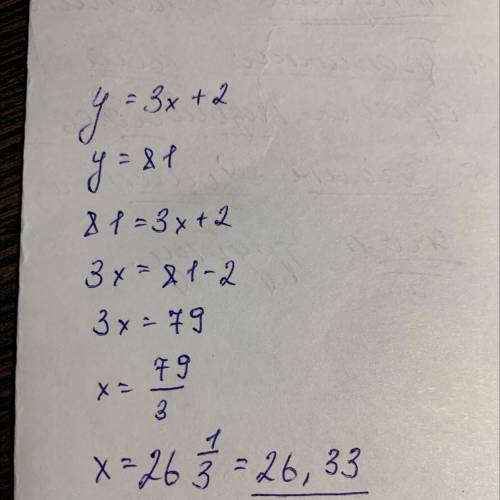 y = 3x + 2
y = 81
81 = 3x + 2
3x = 81 - 2
3x = 79
x = 79/3
x = 26 1/3 = 26,33